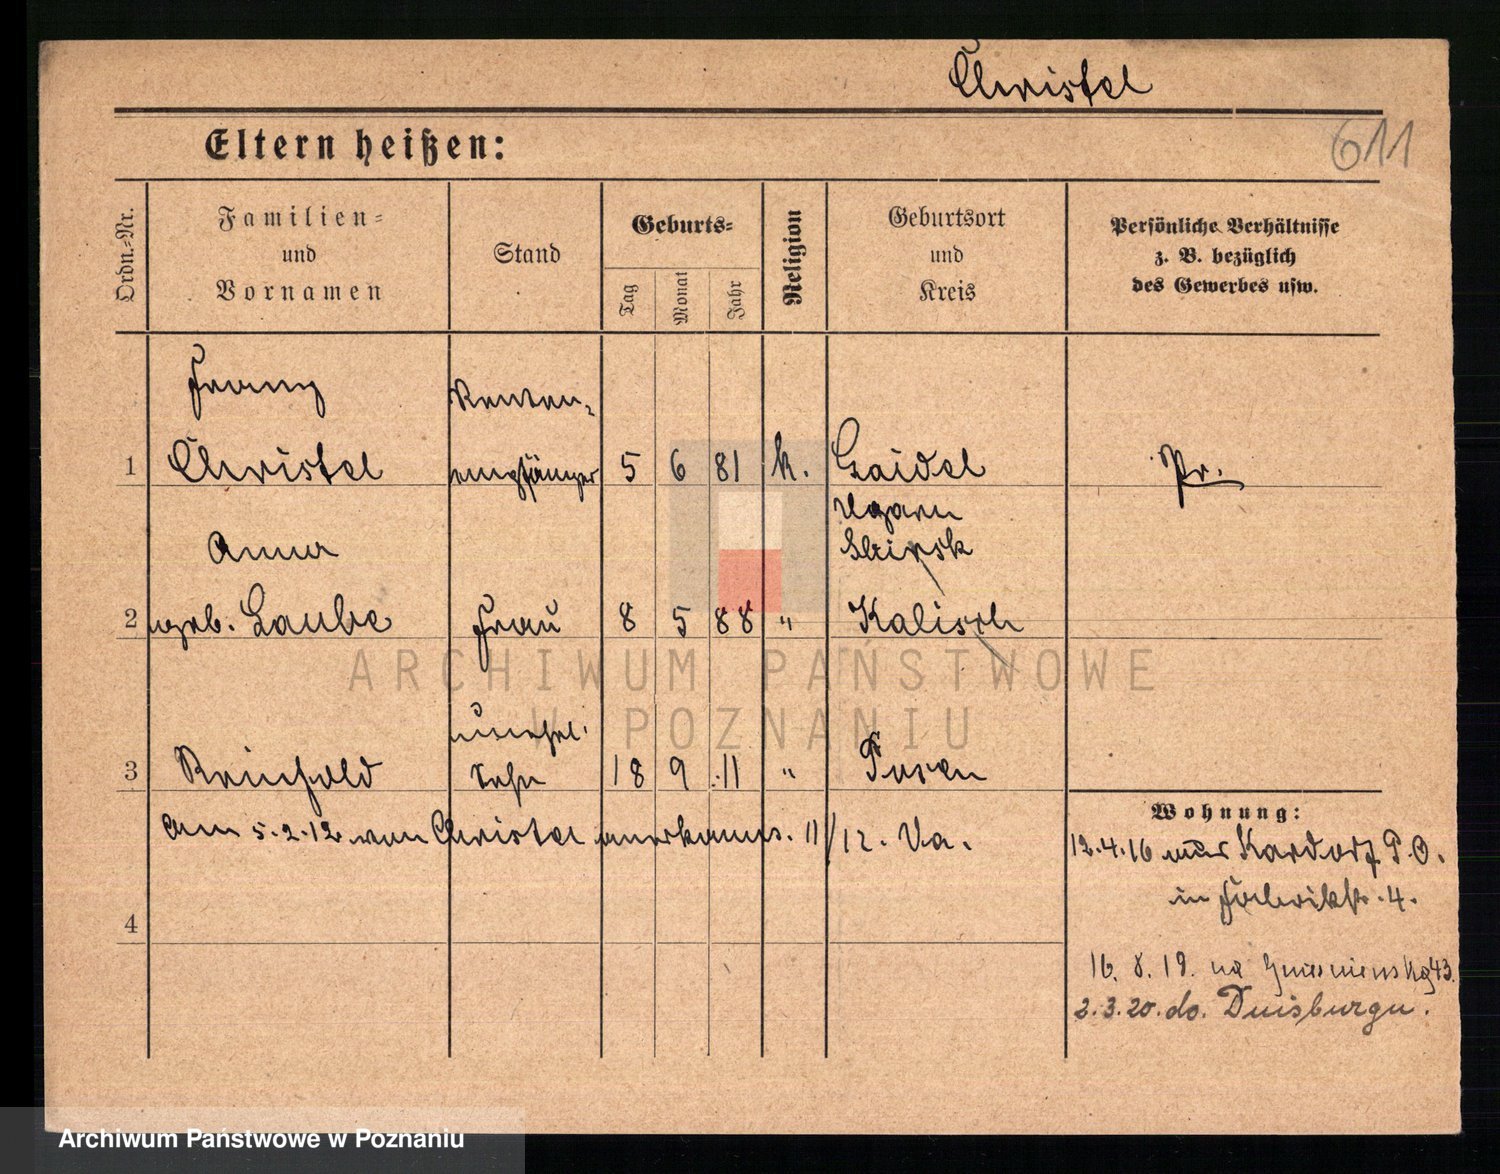 Christel
611
Eltern heißen:
Ordn.-Nr.
Familien-
und
Vornamen
Stand
Geburts-
Tag
Monat
Jahr
Religion
Geburtsort
und
Kreis
Persönliche Verhältnisse
z. B. bezüglich
des Gewerbes usw.
Franz
Renten-
1 Christel empfänger 5 6 81 k. Gaidel Pr.
Ugarn
Anna
2 geb. Laube Frau 8 5 88 " Kalisch
unehel.
3 Reinhold Sohn 18 9 11 " Posen
Am 5.2.12 von Christel anerkannt. 11/12. Va.
4
Wohnung:
12.4.16 nach Kardorf P.O.
in Fabrikstr. 4.
16. 8. 19. na Gnieznienską 43.
2.3.20. do. Duisburgu.
ARCHIWUM PAŃSTWOWE
W POZNANIU
Archiwum Państwowe w Poznaniu